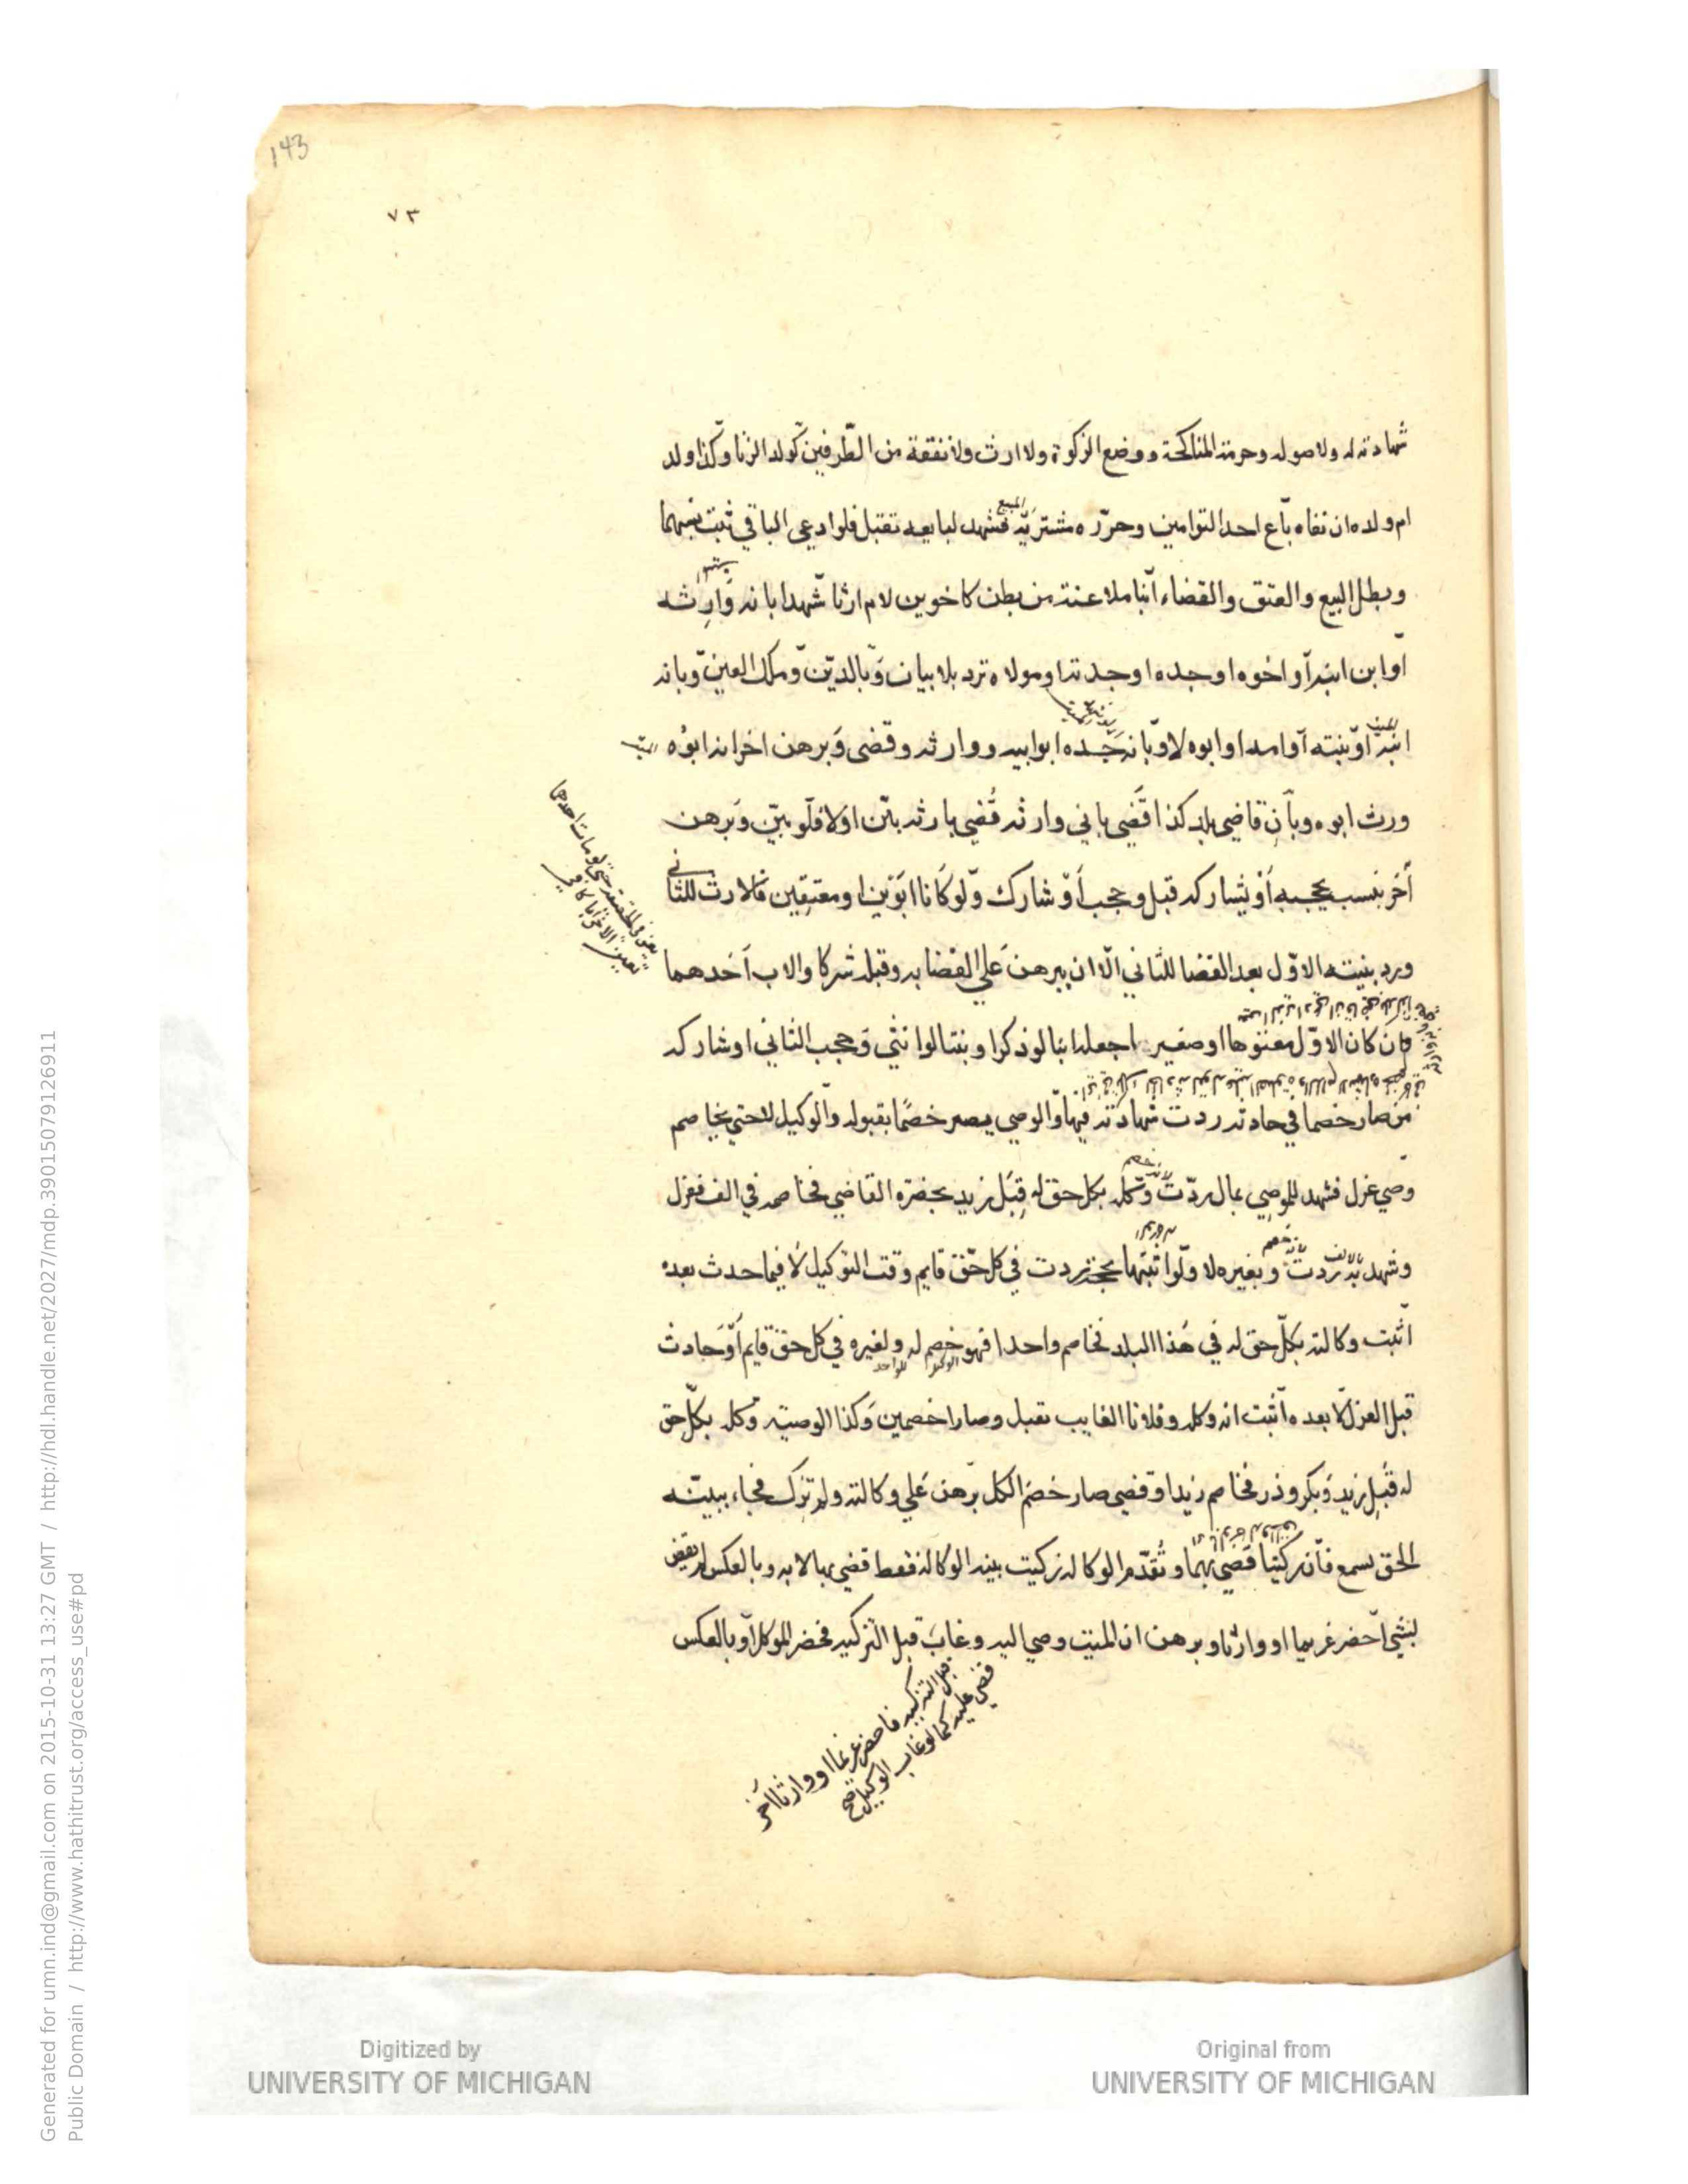 143
٧٣
شهادته له ولاصوله وحرمة المناكحة ووضع الزكوة ولا ارث ولا نفقة من الطرفين كولد الزنا وكذا ولد
ام ولده ان نفاه باع احد التوامين وحرره مشتريه فشهد لبايعه تقبل فلو ادعى الباقي ثبت نسبهما
المبيع
وبطل البيع والعتق والقضاء ابنا ملاعنة من بطن كاخوين لام ارثا شهدا بانه وارثه
او ابن ابنه او اخوه او جده او جدته او مولاه ترد بلا بيان وبالدين وملك العين وبانه
ابنه او بنته او امه او ابوه لا وبانه جده ابو ابيه ووارثه وقضى وبرهن اخر انه ابوه
الميت
ورث ابوه وبان قاضي بلد كذا قضى باني وارثه قضي بارثه بين اولا فلو بين وبرهن
آخر بنسب يحجبه او يشاركه قبل وحجب او شارك ولو كانا ابوين او معتقين فالارث للثاني
ورد بينة الاول بعد القضا للثاني الا ان يبرهن على القضا به وقبله شركا والاب احدهما
فان كان الاول معتوها او صغيرا جعله ابنا لو ذكرا وبنتا لو انثى وحجب الثاني او شاركه
من صار خصما في حادثة ردت شهادته فيها والوصي يصير خصما بقبوله والوكيل لا حتى يخاصم
وصي عزل فشهد للموصي بمال ردت وكله بكل حق له قبل زيد بحضرة القاضي فخاصمه في الف فعزل
وشهد به ردت وبغيره لا ولو اثبتها بحجة ردت في كل حق قايم وقت التوكيل لا فيما حدث بعده
اثبت وكالته بكل حق له في هذا البلد فخاصم واحدا فهو خصم له ولغيره في كل حق قايم او حادث
قبل العزل لا بعده اثبت انه وكله وفلانا الغايب تقبل وصارا خصمين وكذا الوصية وكله بكل حق
له قبل زيد وبكر وذر فخاصم زيدا وقضي صار خصم الكل برهن على وكالته ولم تزك فجاء ببينة
الحق تسمع فان زكيتا قضي بهما وتقدم الوكالة زكيت بينة الوكالة فقط قضي بها لا به وبالعكس لم يقض
بشي احضر غريما او وارثا وبرهن ان الميت وصي اليه وغاب قبل التزكية فحضر الموكل او بالعكس
قبل التزكية فاحضر غريما او وارثا اخر
قضي عليه كما لو غاب الوكيل صح
Digitized by
UNIVERSITY OF MICHIGAN
Original from
UNIVERSITY OF MICHIGAN
Generated for umn.ind@gmail.com on 2015-10-31 13:27 GMT / http://hdl.handle.net/2027/mdp.39015079126911
Public Domain / http://www.hathitrust.org/access_use#pd